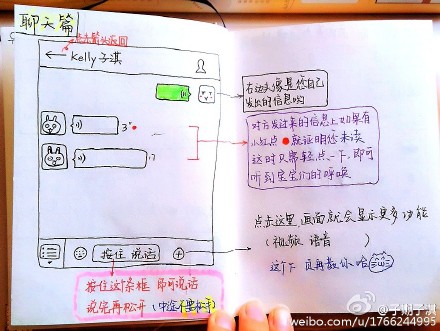 聊天篇
点击箭头返回
← Kelly子淇
右边头像是您自己
发出的信息哟
3"
对方发过来的信息上如果有
小红点 就证明您未读
这时只需轻点一下,即可
听到宝宝们的呼唤
点击这里,画面就会显示更多功能
(视频 语音 )
这个下一页再教你哈
按住 说话
按住这个条框 即可说话
说完再松开(中途不要松手)
@子期子淇
weibo.com/u/1766244995